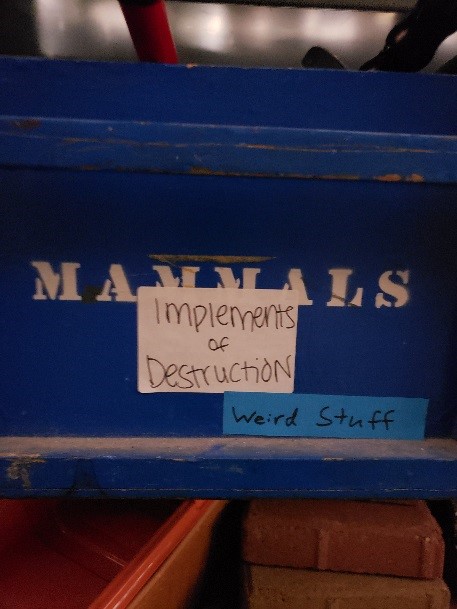 MAMMALS
Implements
of
Destruction
Weird Stuff